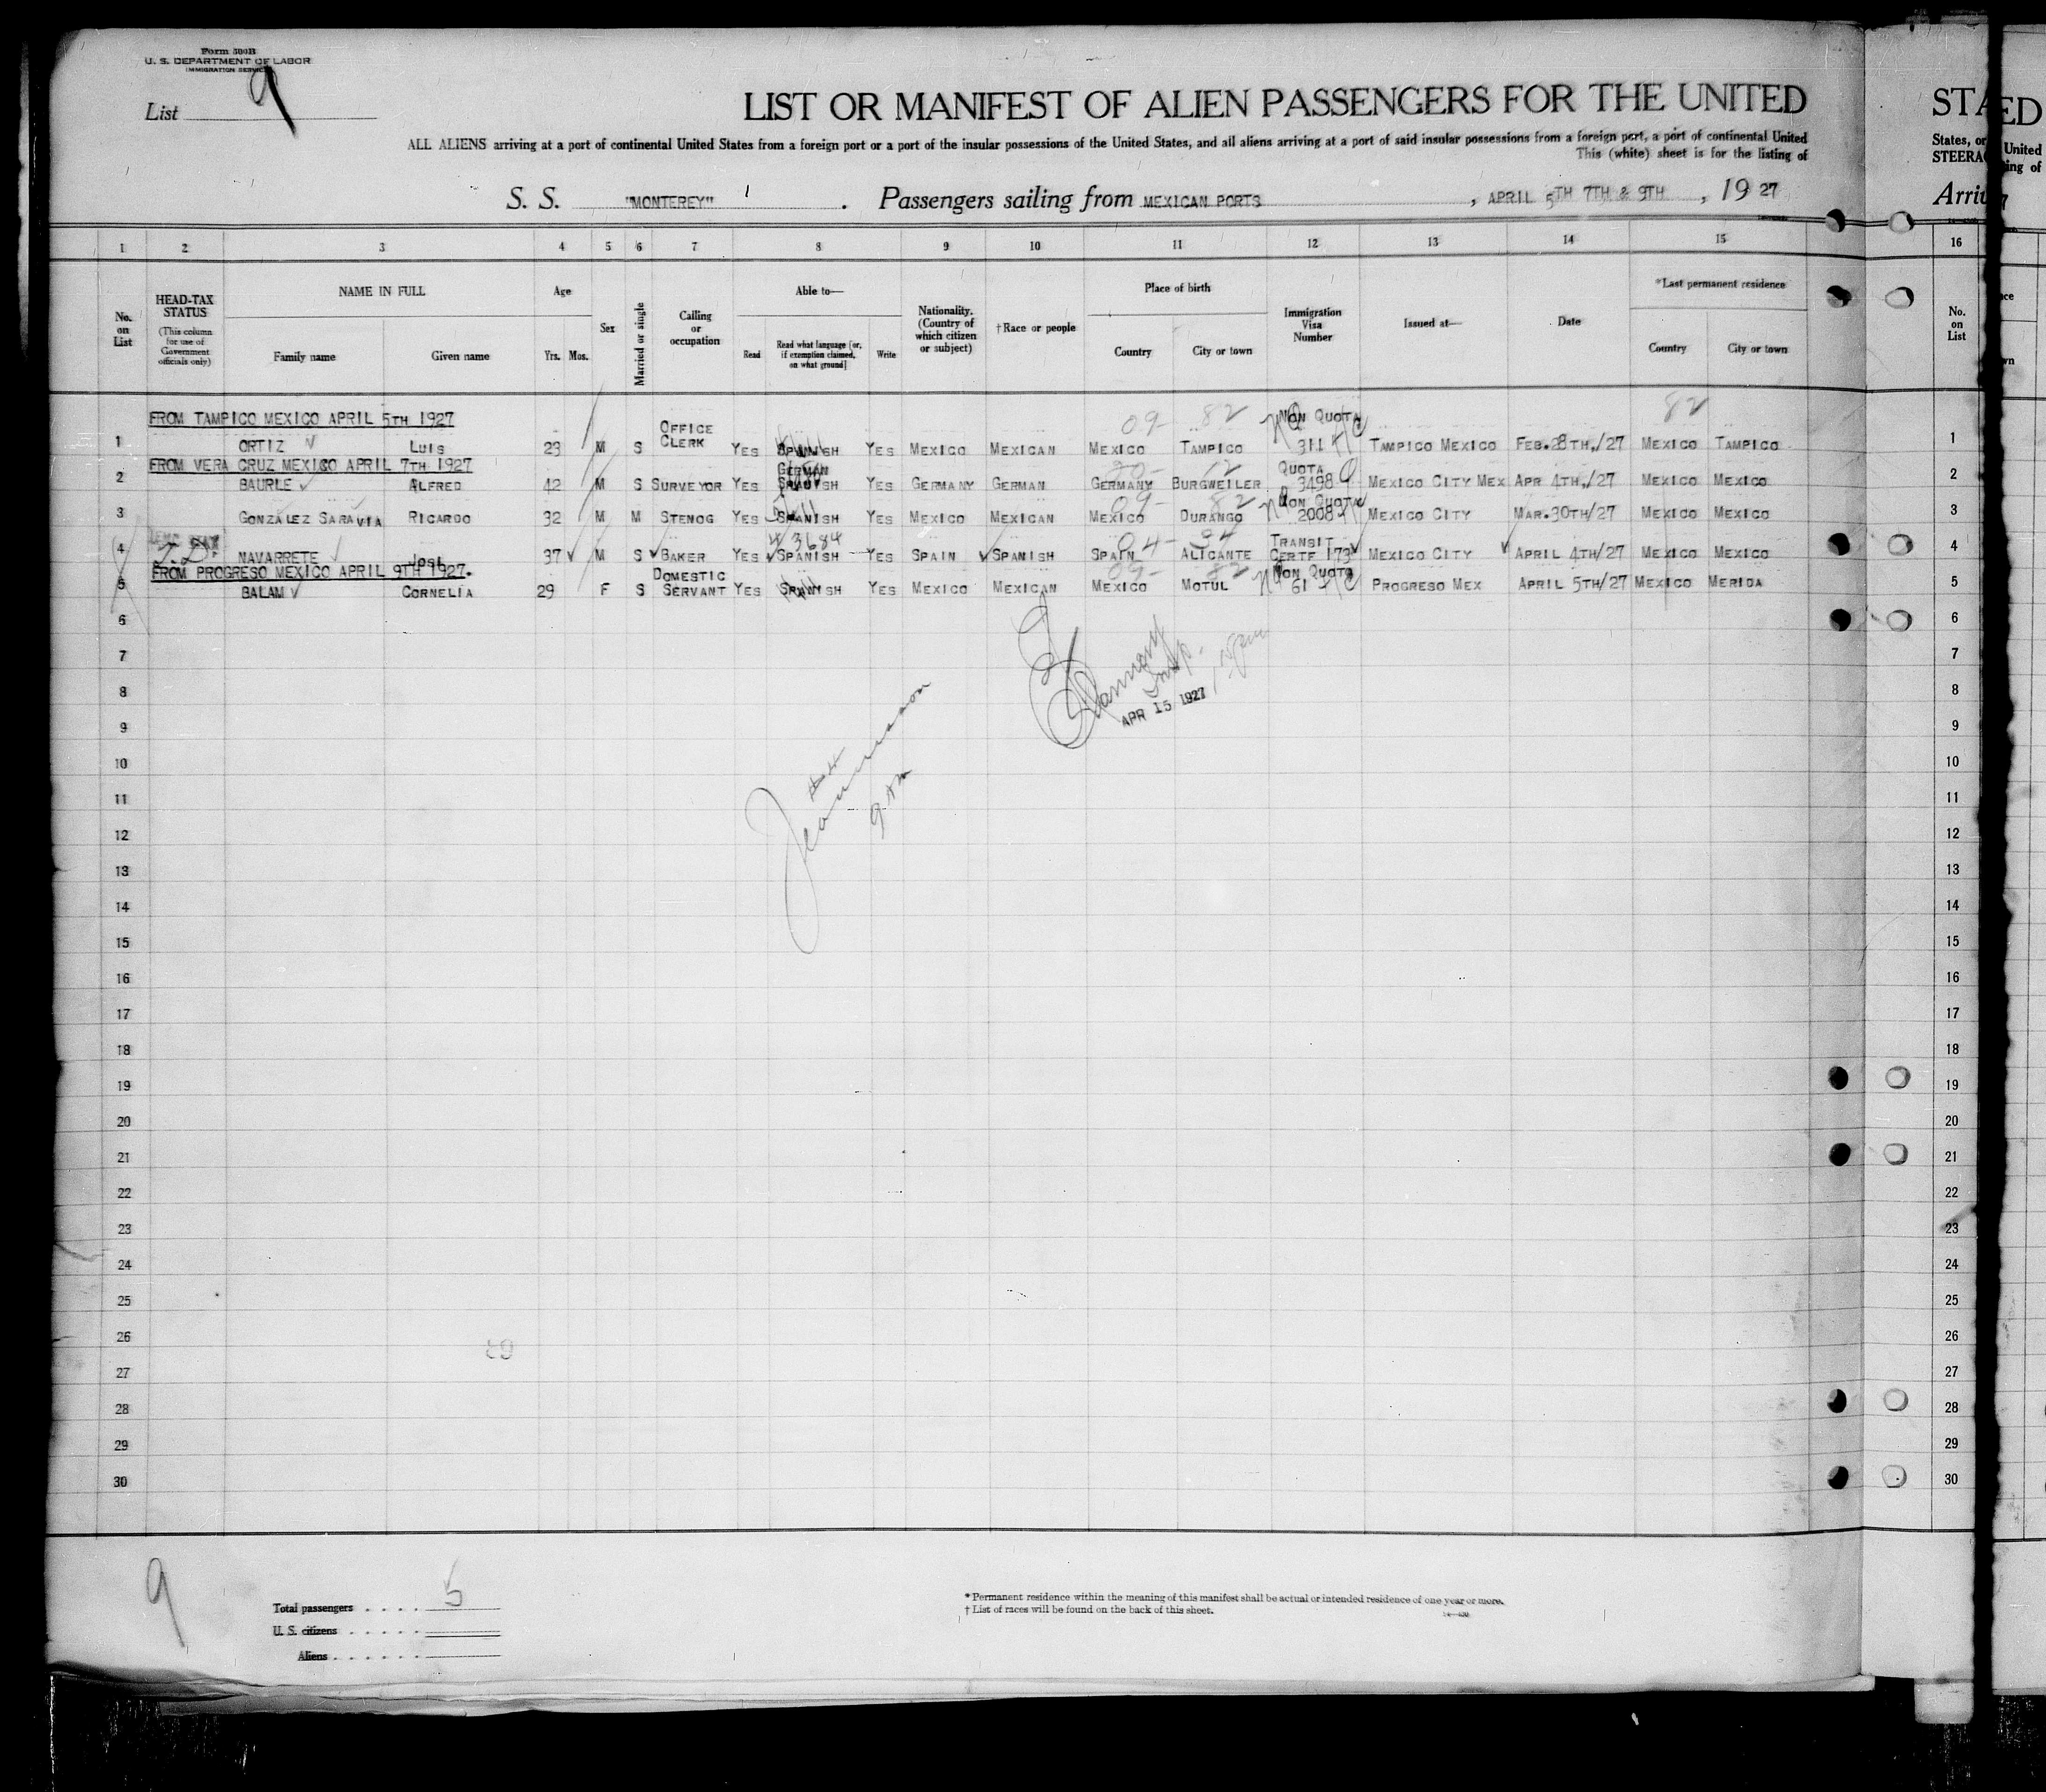 Form 500B
U. S. DEPARTMENT OF LABOR
IMMIGRATION SERVICE
List 9
LIST OR MANIFEST OF ALIEN PASSENGERS FOR THE UNITED
ALL ALIENS arriving at a port of continental United States from a foreign port or a port of the insular possessions of the United States, and all aliens arriving at a port of said insular possessions from a foreign port, a port of continental United
This (white) sheet is for the listing of
S. S. "MONTEREY" . Passengers sailing from MEXICAN PORTS , APRIL 5TH 7TH & 9TH , 19 27
1 2 3 4 5 6 7 8 9 10 11 12 13 14 15
No. on List
HEAD-TAX STATUS
(This column for use of Government officials only)
NAME IN FULL
Family name Given name
Age
Yrs. Mos.
Sex
Married or single
Calling or occupation
Able to—
Read
Read what language [or, if exemption claimed, on what ground]
Write
Nationality. (Country of which citizen or subject)
†Race or people
Place of birth
Country City or town
Immigration Visa Number
Issued at—
Date
*Last permanent residence
Country City or town
FROM TAMPICO MEXICO APRIL 5TH 1927
1 ORTIZ LUIS 23 M S OFFICE CLERK YES SPANISH YES MEXICO MEXICAN MEXICO TAMPICO NON QUOTA 311 TAMPICO MEXICO FEB.28TH,/27 MEXICO TAMPICO
09- 82 82
FROM VERA CRUZ MEXICO APRIL 7TH 1927
2 BAURLE ALFRED 42 M S SURVEYOR YES GERMAN SPANISH YES GERMANY GERMAN GERMANY BURGWEILER QUOTA 3498 MEXICO CITY MEX APR 4TH,/27 MEXICO MEXICO
3 GONZALEZ SARAVIA RICARDO 32 M M STENOG YES SPANISH YES MEXICO MEXICAN MEXICO DURANGO NON QUOTA 2008 MEXICO CITY MAR.30TH/27 MEXICO MEXICO
09- 82
4 T.D. NAVARRETE JOSE 37 M S BAKER YES SPANISH YES SPAIN SPANISH SPAIN ALICANTE TRANSIT CERTF 173 MEXICO CITY APRIL 4TH/27 MEXICO MEXICO
FROM PROGRESO MEXICO APRIL 9TH 1927.
5 BALAM CORNELIA 29 F S DOMESTIC SERVANT YES SPANISH YES MEXICO MEXICAN MEXICO MOTUL NON QUOTA 61 PROGRESO MEX APRIL 5TH/27 MEXICO MERIDA
09- 82
6
7
8
9
10
11
12
13
14
15
16
17
18
19
20
21
22
23
24
25
26
27
28
29
30
Insp.
APR 15 1927
9
Total passengers . . . . 5
U. S. citizens . . . . .
Aliens . . . . . .
* Permanent residence within the meaning of this manifest shall be actual or intended residence of one year or more.
† List of races will be found on the back of this sheet.
STA
States, or
STEERA
Arriv
16
No. on List
1
2
3
4
5
6
7
8
9
10
11
12
13
14
15
16
17
18
19
20
21
22
23
24
25
26
27
28
29
30
ED
United
ing of